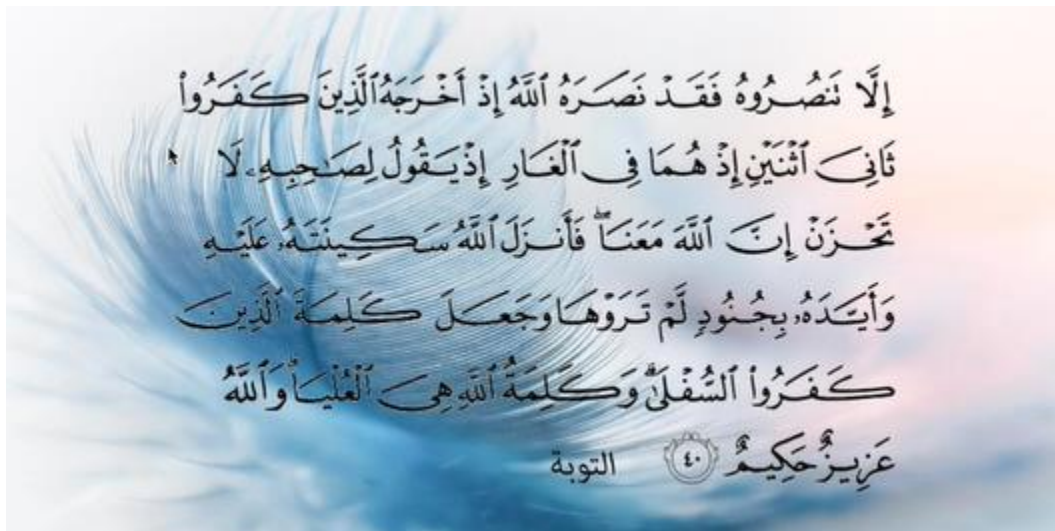 إِلَّا تَنصُرُوهُ فَقَدْ نَصَرَهُ ٱللَّهُ إِذْ أَخْرَجَهُ ٱلَّذِينَ كَفَرُوا۟
ثَانِىَ ٱثْنَيْنِ إِذْ هُمَا فِى ٱلْغَارِ إِذْ يَقُولُ لِصَـٰحِبِهِۦ لَا
تَحْزَنْ إِنَّ ٱللَّهَ مَعَنَا ۖ فَأَنزَلَ ٱللَّهُ سَكِينَتَهُۥ عَلَيْهِ
وَأَيَّدَهُۥ بِجُنُودٍ لَّمْ تَرَوْهَا وَجَعَلَ كَلِمَةَ ٱلَّذِينَ
كَفَرُوا۟ ٱلسُّفْلَىٰ ۗ وَكَلِمَةُ ٱللَّهِ هِىَ ٱلْعُلْيَا ۗ وَٱللَّهُ
عَزِيزٌ حَكِيمٌ ٤٠ التوبة